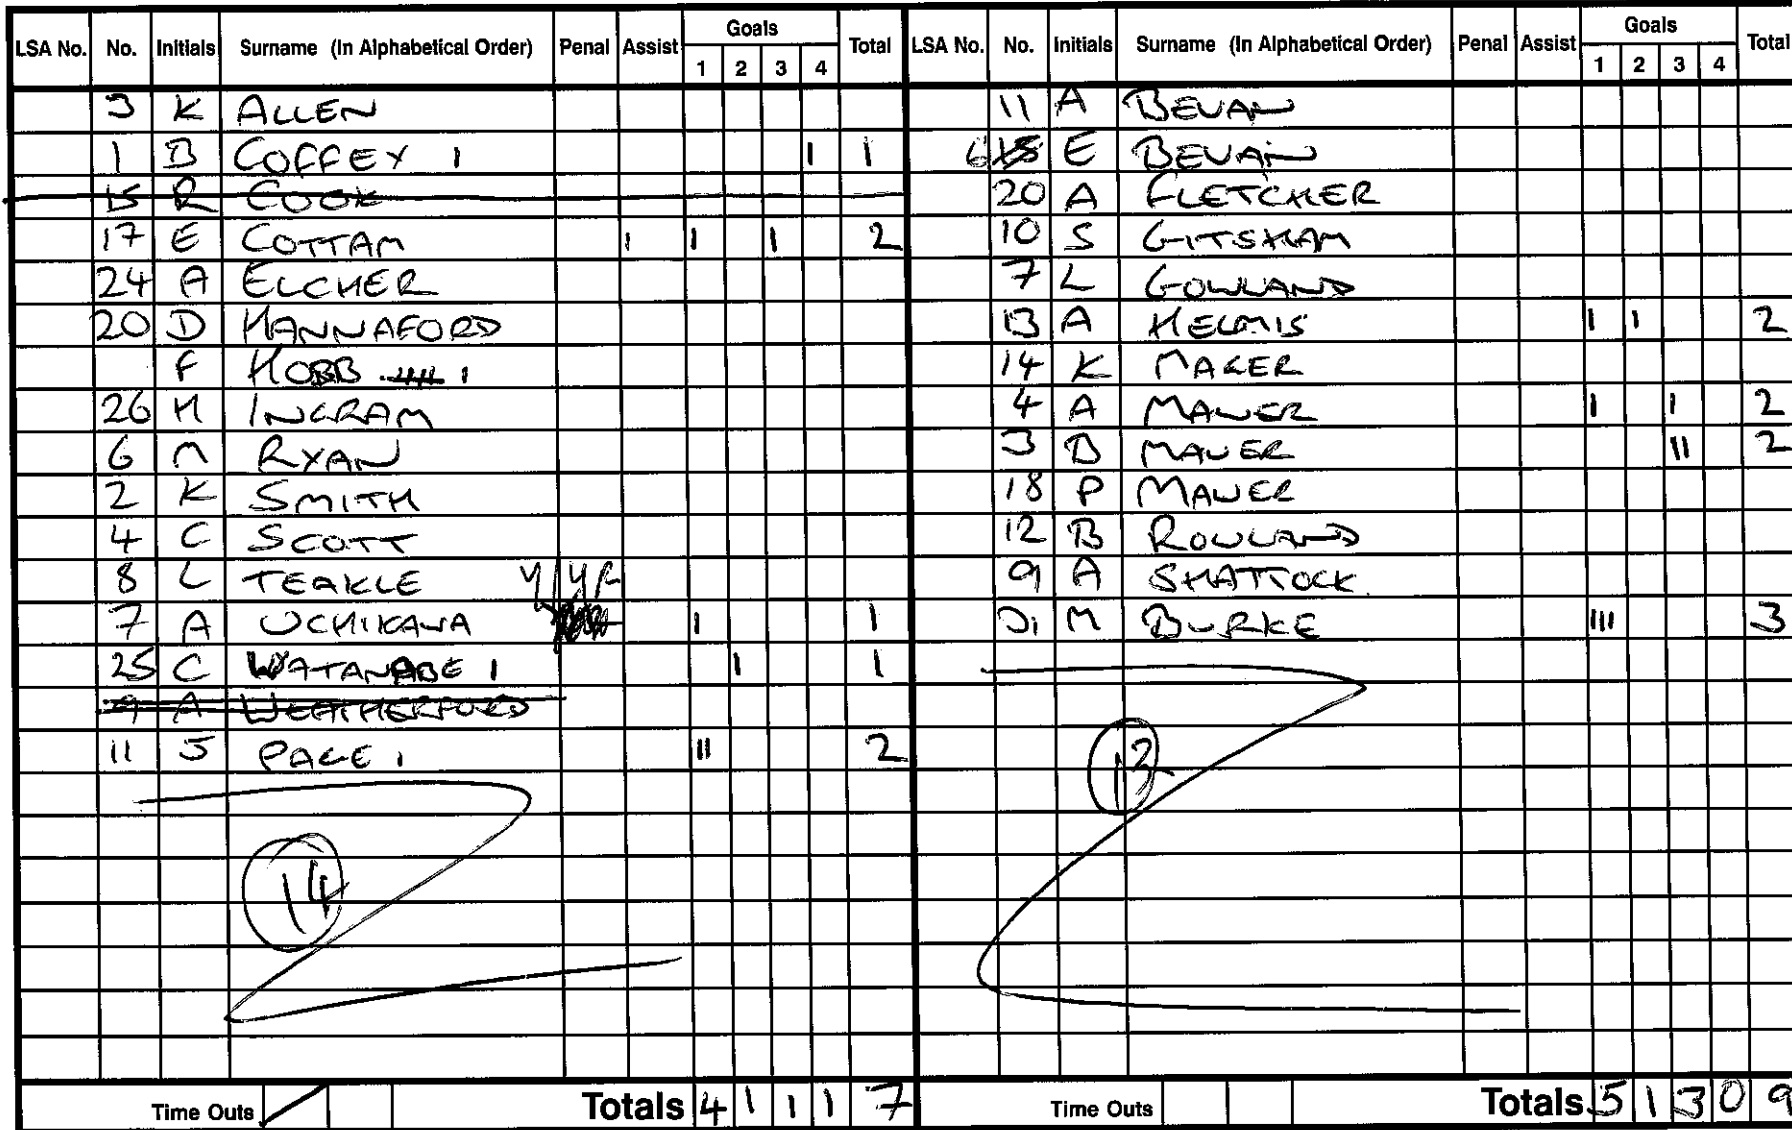 LSA No. No. Initials Surname (In Alphabetical Order) Penal Assist Goals 1 2 3 4 Total
3 K ALLEN
1 B COFFEY 1 1 1
15 R COOK
17 E COTTAM 1 1 1 2
24 A ELCHER
20 D HANNAFORD
F HOBB 1
26 H INGRAM
6 M RYAN
2 K SMITH
4 C SCOTT
8 L TEAKLE Y/YR
7 A UCHIKAWA 1 1
25 C WATANABE 1 1 1
9 A WEATHERFORD
11 J PAGE 1 11 2
14
Time Outs Totals 4 1 1 1 7
LSA No. No. Initials Surname (In Alphabetical Order) Penal Assist Goals 1 2 3 4 Total
11 A BEVAN
6 E BEVAN
20 A FLETCHER
10 S GITSHAM
7 L GOWLAND
13 A HELMIS 1 1 2
14 K MAGER
4 A MAUER 1 1 2
3 B MAUER 11 2
18 P MAUER
12 B ROWLAND
9 A SHATTOCK
31 M BURKE 111 3
13
Time Outs Totals 5 1 3 0 9